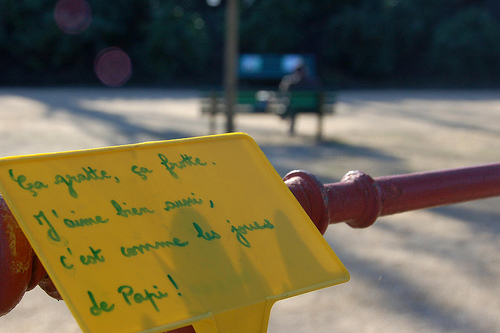 Ça gratte, ça frotte.
J'aime bien aussi,
c'est comme les joues
de Papi !